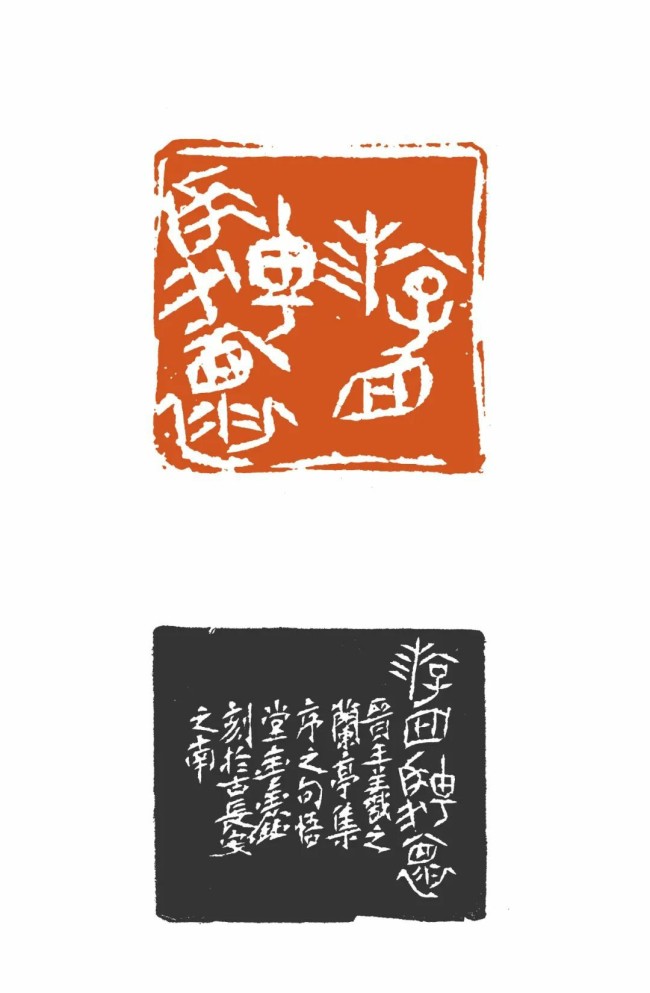 游目
騁懷
游目騁懷
晉王羲之
蘭亭集
序之句悟
堂主
刻於古長安
之南